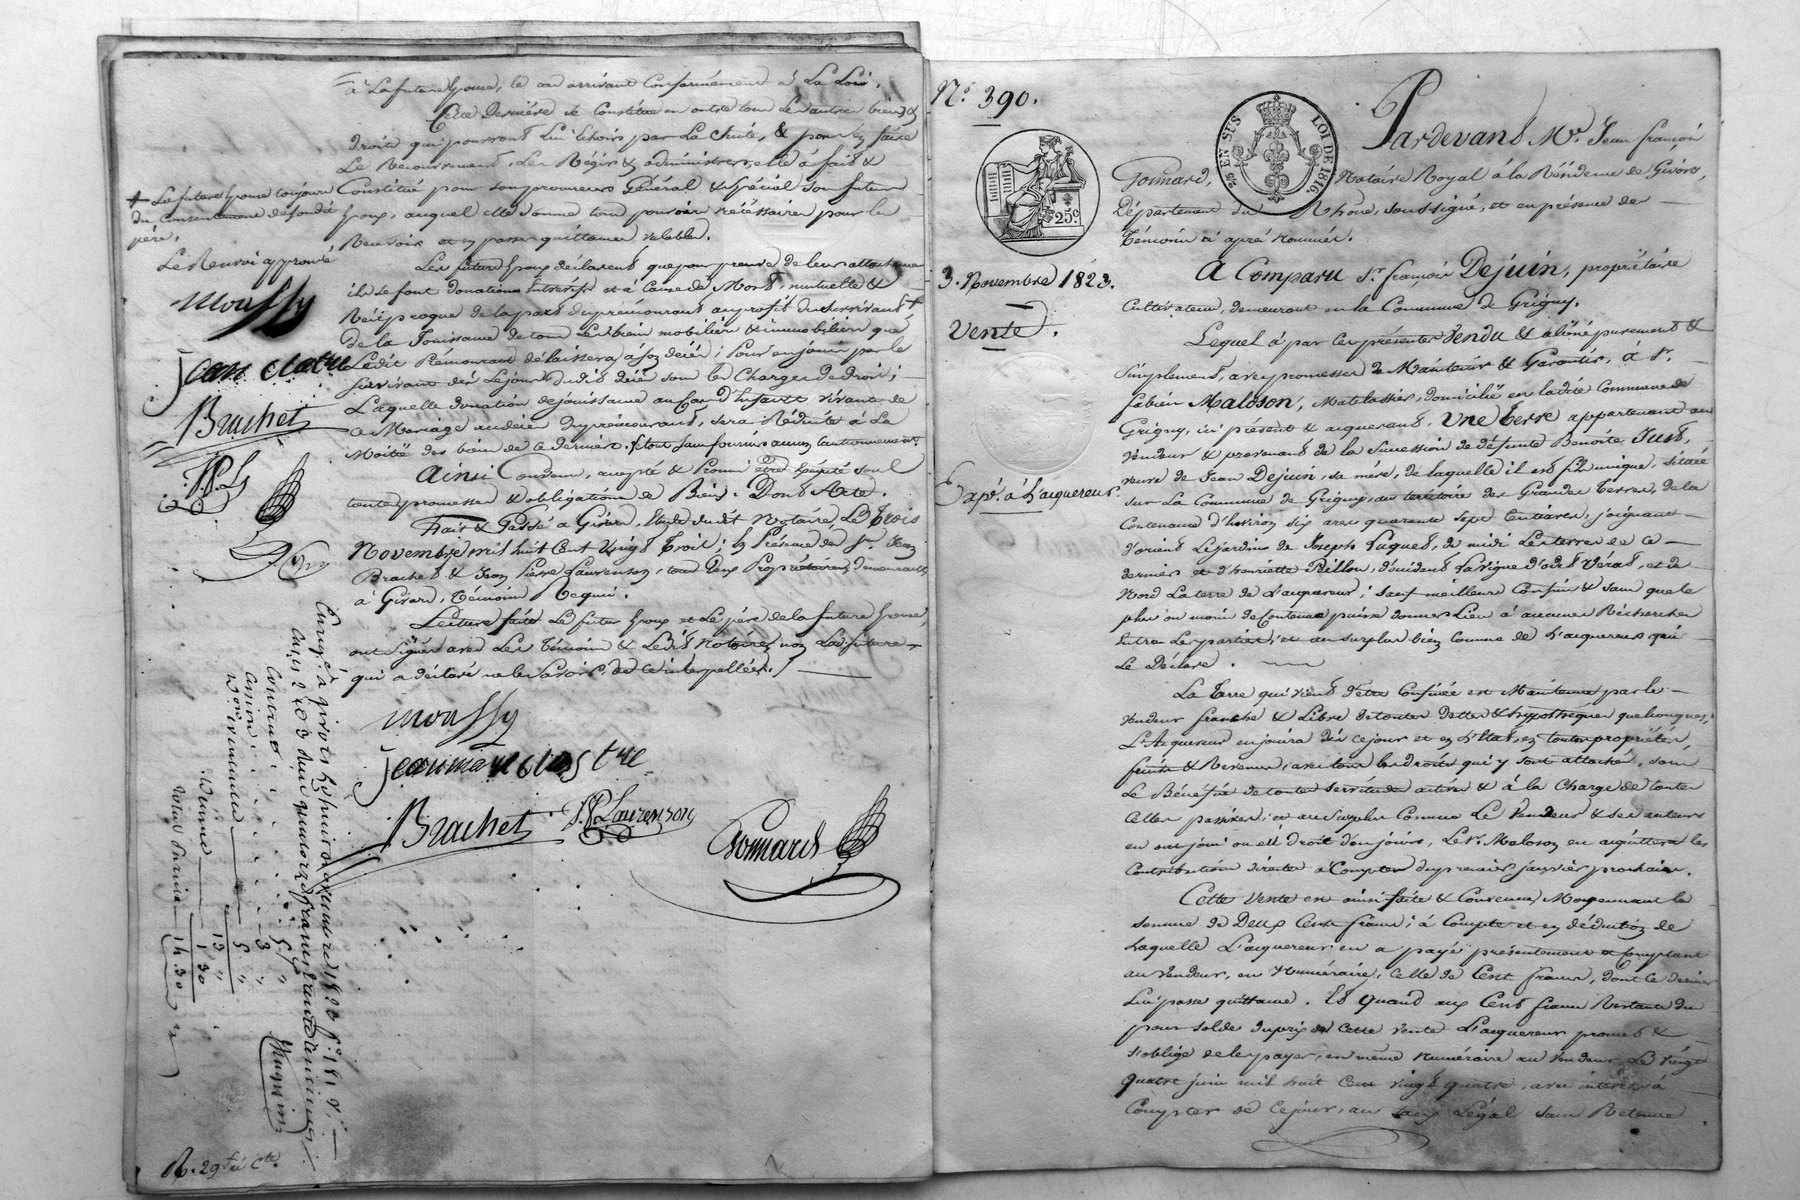 à La future Epouse, le cas arrivant Conformément à La Loi.
Cette Derniére se Constitue en outre tous Les autres biens &
droits qui pourront Lui échoir par La Suite, & pour en faire
Le Recouvrement, Les Régir & administrer, elle à fait &
Constitué pour son procureur Général & Spécial son futur
Epoux, auquel elle donne tout pouvoir nécéssaire pour les
Recevoir et en passer quittances valables.
Les futurs Epoux déclarent que pour preuve de leur attachement
ils se font donation entrevifs et à Cause de Mort, mutuelle &
Réciproque de la part du prémourant au profit du survivant +
de la Jouissance de tous Les biens mobiliers & immobiliers que
Ledit Prémourant délaissera à son décès ; Pour en jouir par le
survivant dés Le jour dudit décés sous les Charges de droit ;
Laquelle donation de jouissance au Cas d'Enfants vivants de
Ce Mariage au décès du prémourant, sera Réduite à La
Moitié des biens de ce dernier.
Ainsi Convenu, accepté & Promis être éxécuté sous
toutes promesses & obligations de Biens. Dont Acte.
Fait & Passé à Givors, Etude dudit Notaire, Le Trois
Novembre mil huit Cent Vingt Trois ; En Présence des Srs. Jean
Brachet & Jean Pierre Laurenson, tous deux Propriétaires, demeurants
à Givors, Témoins Requis.
Lecture faite Le futur Epoux et Le pére de la future Epouse,
ont signés avec Les Témoins & Ledit Notaire, non La future
qui a déclaré ne le savoir, de ce interpellée. /
+ La future Epouse toujours
du consentement de son dit
pére,
Le Renvoi approuvé
Moussy
Jean Clastre
Brachet
J.P.L.
Moussy
Jean marc clastre
Brachet
J.P. Laurenson
Gonnard
R. 29. Cte.
N.° 390.
25 EN SUS
LOI DE 1816.
25c.
Pardevant Me. Jean françois
Gonnard, Notaire Royal à la Résidence de Givors,
Département du Rhône, soussigné, et en présence des
Témoins ci aprés nommés.
3. Novembre 1823.
Vente.
Expon. à L'acquereur.
A Comparu Sr. françois Dejuin, propriétaire
Cultivateur, demeurant en la Commune de Grigny.
Lequel à par ces présentes Vendu & aliéné purement &
simplement, avec promesses de Maintenir & Garantir, à Sr.
fabien Maloson, Matelassier, domicilié en ladite Commune de
Grigny, ici présent & acquereur, Une Terre appartenant au
Vendeur & provenant de la succession de défunte Benoite Just,
veuve de Jean Dejuin, sa mére, de laquelle il est fils unique, située
sur La Commune de Grigny, au territoire des Grandes Terres, de la
Contenance d'environ six ares quarante sept Centiares, joignant
d'orient Le jardin de Joseph Paquet, de midi Les terres de ce
dernier et d'henriette Peillon, d'occident La Vigne d'odet Véras, et de
Nord La terre de L'acquereur ; sauf meilleurs Confins & sans que le
plus ou moins de Contenance puisse donner Lieu à aucunes Récherches
Entre Les parties ; et au surplus bien Connue de L'acquereur qui
Le Déclare.
La Terre qui vient d'être Confinée est Maintenue par le
Vendeur franche & Libre de toutes dettes & hypothèques quelconques.
L'Acquereur en jouira dés ce jour et en L'état, en toute propriété,
fruits & Revenus, avec tous les droits qui y sont attachés, sous
Le Bénéfice de toutes servitudes actives & à la Charge de toutes
Celles passives ; et au surplus Comme Le Vendeur & ses auteurs
en ont joui ou eû droit d'en jouir, Le Sr. Maloson en acquittera les
Contributions directes à Compter du premier janvier prochain.
Cette Vente est ainsi faite & Convenue, Moyennant la
somme de Deux Cents francs ; à Compte et en déduction de
Laquelle L'acquereur en a payé présentement & Comptant
au Vendeur, en Numéraire, Celle de Cent francs, dont Ce dernier
Lui passe quittance. Et Quand aux Cent francs Restants dus
pour solde du prix de Cette Vente L'acquereur promet &
s'oblige de les payer, en même Numéraire au Vendeur, Le Vingt
Quatre juin mil huit Cent vingt quatre, avec intérêts à
Compter de ce jour, au taux Légal sans Retenue